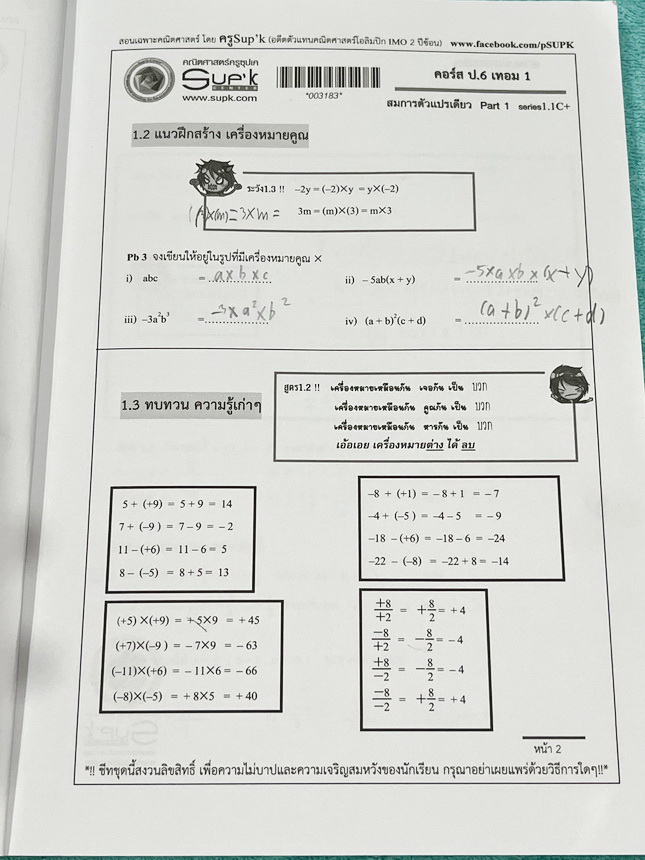 สอนเฉพาะคณิตศาสตร์ โดย ครูSup'k (อดีตตัวแทนคณิตศาสตร์โอลิมปิก IMO 2 ปีซ้อน) www.facebook.com/pSUPK
คณิตศาสตร์ครูซุปเค
Sup'k
CENTER
www.supk.com
*003183*
คอร์ส ป.6 เทอม 1
สมการตัวแปรเดียว Part 1 series1.1C+
1.2 แนวฝึกสร้าง เครื่องหมายคูณ
ระวัง1.3 !! –2y = (–2)×y = y×(–2)
3m = (m)×(3) = m×3
=3×m =
Pb 3 จงเขียนให้อยู่ในรูปที่มีเครื่องหมายคูณ ×
i) abc = a×b×c
ii) – 5ab(x + y) = -5×a×b×(x+y)
iii) –3a²b³ = -3×a²×b²
iv) (a + b)²(c + d) = (a+b)²×(c+d)
1.3 ทบทวน ความรู้เก่าๆ
สูตร1.2 !! เครื่องหมายเหมือนกัน เจอกัน เป็น บวก
เครื่องหมายเหมือนกัน คูณกัน เป็น บวก
เครื่องหมายเหมือนกัน หารกัน เป็น บวก
เอ้อเอย เครื่องหมายต่าง ได้ ลบ
5 + (+9) = 5 + 9 = 14
7 + (–9 ) = 7 – 9 = – 2
11 – (+6) = 11 – 6 = 5
8 – (–5) = 8 + 5 = 13
–8 + (+1) = – 8 + 1 = – 7
–4 + (–5 ) = –4 – 5 = – 9
–18 – (+6) = –18 – 6 = –24
–22 – (–8) = –22 + 8 = –14
(+5) ×(+9) = + 5×9 = + 45
(+7)×(–9 ) = – 7×9 = – 63
(–11)×(+6) = – 11×6 = – 66
(–8)×(–5) = + 8×5 = + 40
+8/+2 = +8/2 = + 4
–8/+2 = –8/2 = – 4
+8/–2 = –8/2 = – 4
–8/–2 = +8/2 = + 4
หน้า 2
*!! ชีทชุดนี้สงวนลิขสิทธิ์ เพื่อความไม่บาปและความเจริญสมหวังของนักเรียน กรุณาอย่าเผยแพร่ด้วยวิธีการใดๆ!!*